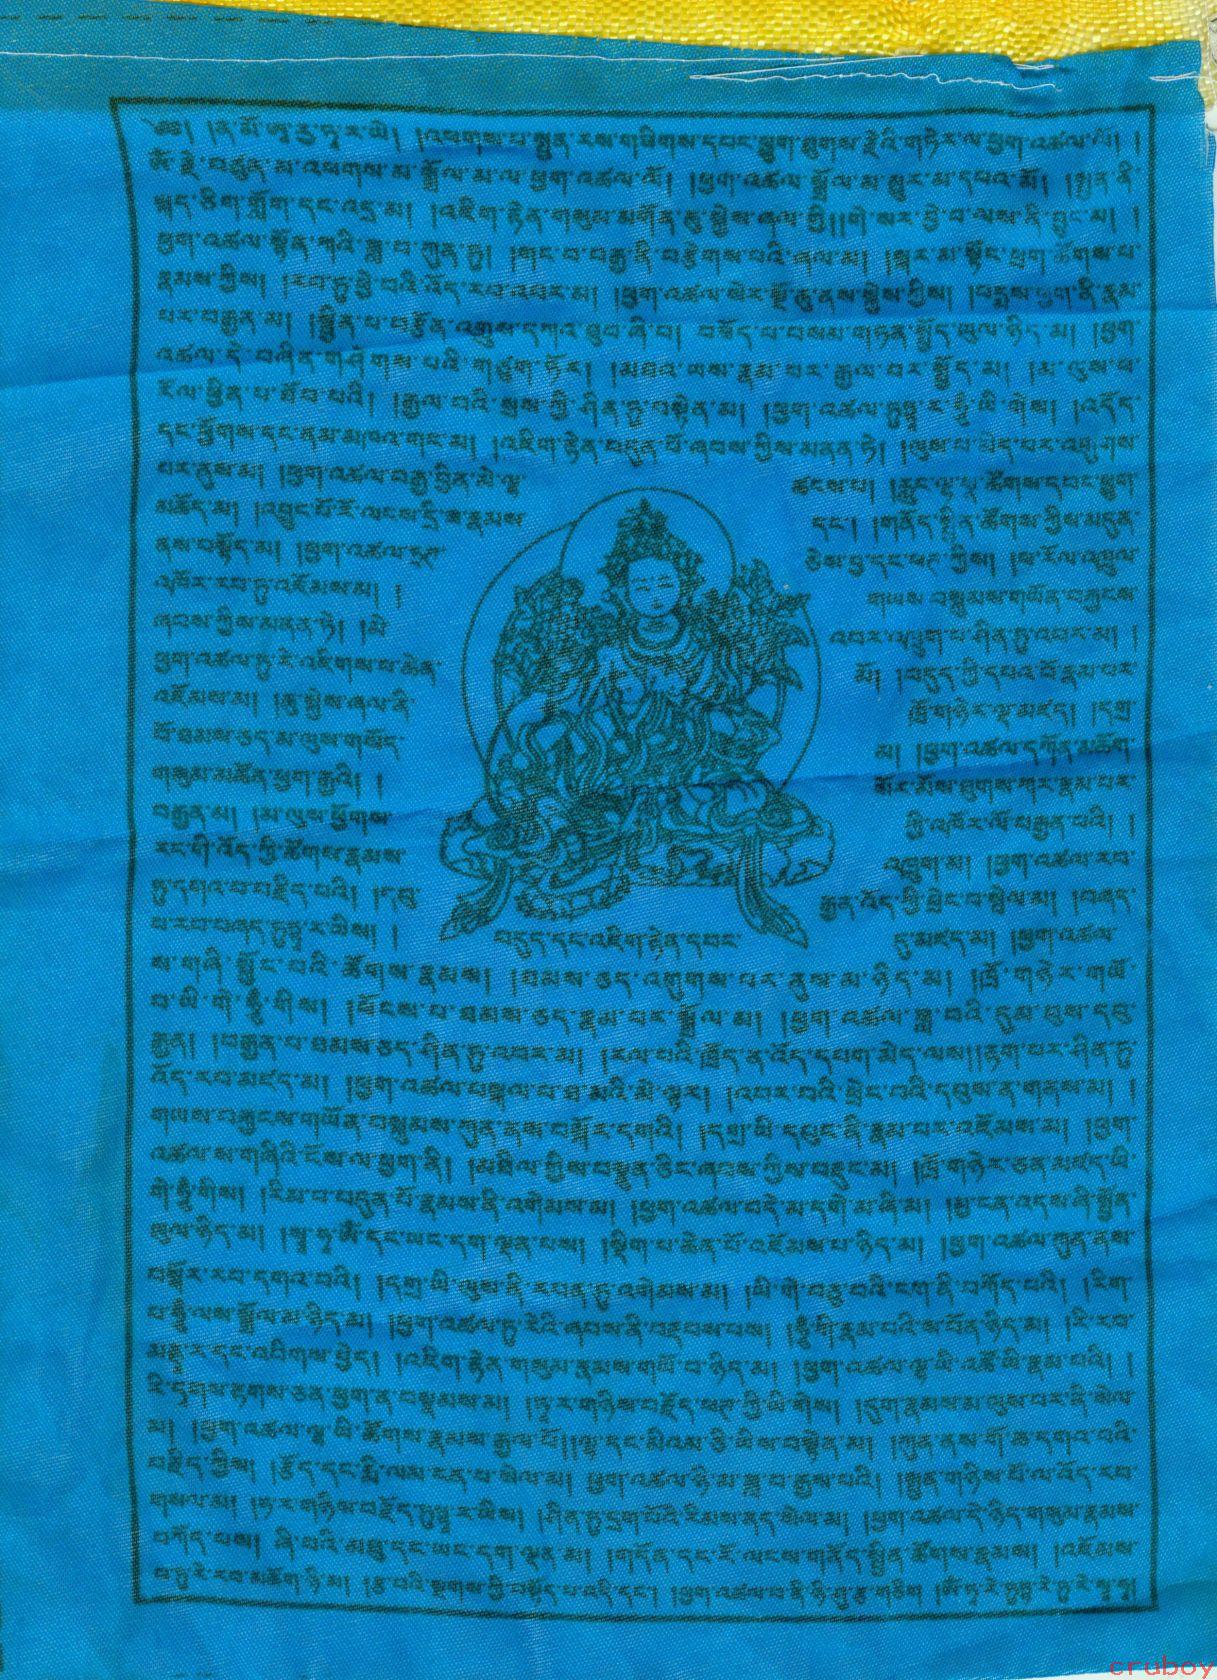 ༄༅། །ན་མོ་ཨཱརྱ་ཏཱ་ར་ཡེ། །འཕགས་པ་སྤྱན་རས་གཟིགས་དབང་ཕྱུག་ཐུགས་རྗེའི་གཏེར་ལ་ཕྱག་འཚལ་ལོ། །
ཨོཾ་རྗེ་བཙུན་མ་འཕགས་མ་སྒྲོལ་མ་ལ་ཕྱག་འཚལ་ལོ། །ཕྱག་འཚལ་སྒྲོལ་མ་མྱུར་མ་དཔའ་མོ། །སྤྱན་ནི་
སྐད་ཅིག་གློག་དང་འདྲ་མ། །འཇིག་རྟེན་གསུམ་མགོན་ཆུ་སྐྱེས་ཞལ་གྱི།།གེ་སར་བྱེ་བ་ལས་ནི་བྱུང་མ། །
ཕྱག་འཚལ་སྟོན་ཀའི་ཟླ་བ་ཀུན་ཏུ། །གང་བ་བརྒྱ་ནི་བརྩེགས་པའི་ཞལ་མ། །སྐར་མ་སྟོང་ཕྲག་ཚོགས་པ་
རྣམས་ཀྱིས། །རབ་ཏུ་ཕྱེ་བའི་འོད་རབ་འབར་མ། །ཕྱག་འཚལ་སེར་སྔོ་ཆུ་ནས་སྐྱེས་ཀྱིས། །པདྨས་ཕྱག་ནི་རྣམ་
པར་བརྒྱན་མ། །སྦྱིན་པ་བརྩོན་འགྲུས་དཀའ་ཐུབ་ཞི་བ། བཟོད་པ་བསམ་གཏན་སྤྱོད་ཡུལ་ཉིད་མ། །ཕྱག་
འཚལ་དེ་བཞིན་གཤེགས་པའི་གཙུག་ཏོར། །མཐའ་ཡས་རྣམ་པར་རྒྱལ་བར་སྤྱོད་མ། །མ་ལུས་ཕ་
རོལ་ཕྱིན་པ་ཐོབ་པའི། །རྒྱལ་བའི་སྲས་ཀྱི་ཤིན་ཏུ་བསྟེན་མ། །ཕྱག་འཚལ་ཏུཏྟཱ་ར་ཧཱུྃ་ཡི་གེས། །འདོད་
དང་ཕྱོགས་དང་ནམ་མཁའ་གང་མ། །འཇིག་རྟེན་བདུན་པོ་ཞབས་ཀྱིས་མནན་ཏེ། །ལུས་པ་མེད་པར་འགུགས་
པར་ནུས་མ། །ཕྱག་འཚལ་བརྒྱ་བྱིན་མེ་ལྷ་ ཚངས་པ། །རླུང་ལྷ་སྣ་ཚོགས་དབང་ཕྱུག་
མཆོད་མ། །འབྱུང་པོ་རོ་ལངས་དྲི་ཟ་རྣམས་ དང་། །གནོད་སྦྱིན་ཚོགས་ཀྱིས་མདུན་
ནས་བསྟོད་མ། །ཕྱག་འཚལ་ཏྲཊ་ ཅེས་བྱ་དང་ཕཊ་ཀྱིས། །ཕ་རོལ་འཁྲུལ་
འཁོར་རབ་ཏུ་འཇོམས་མ། ། གཡས་བསྐུམས་གཡོན་བརྐྱངས་
ཞབས་ཀྱིས་མནན་ཏེ། །མེ་ འབར་འཁྲུག་པ་ཤིན་ཏུ་འབར་མ། །
ཕྱག་འཚལ་ཏུ་རེ་འཇིགས་པ་ཆེན་ མོ། །བདུད་ཀྱི་དཔའ་བོ་རྣམ་པར་
འཇོམས་མ། །ཆུ་སྐྱེས་ཞལ་ནི་ ཁྲོ་གཉེར་ལྡན་མཛད། །དགྲ་
བོ་ཐམས་ཅད་མ་ལུས་གསོད་ མ། །ཕྱག་འཚལ་དཀོན་མཆོག་
གསུམ་མཚོན་ཕྱག་རྒྱའི། ། སོར་མོས་ཐུགས་ཀར་རྣམ་པར་
བརྒྱན་མ། །མ་ལུས་ཕྱོགས་ ཀྱི་འཁོར་ལོ་བརྒྱན་པའི། །
རང་གི་འོད་ཀྱི་ཚོགས་རྣམས་ འཁྲུག་མ། །ཕྱག་འཚལ་རབ་
ཏུ་དགའ་བ་བརྗིད་པའི། །དབུ་ རྒྱན་འོད་ཀྱི་ཕྲེང་བ་སྤེལ་མ། །བཞད་
པ་རབ་བཞད་ཏུཏྟཱ་ར་ཡིས། ། བདུད་དང་འཇིག་རྟེན་དབང་ དུ་མཛད་མ། །ཕྱག་འཚལ་
ས་གཞི་སྐྱོང་བའི་ཚོགས་རྣམས། །ཐམས་ཅད་འགུགས་པར་ནུས་མ་ཉིད་མ། །ཁྲོ་གཉེར་གཡོ་
བ་ཡི་གེ་ཧཱུྃ་གིས། །ཕོངས་པ་ཐམས་ཅད་རྣམ་པར་སྒྲོལ་མ། །ཕྱག་འཚལ་ཟླ་བའི་དུམ་བུས་དབུ་
རྒྱན། །བརྒྱན་པ་ཐམས་ཅད་ཤིན་ཏུ་འབར་མ། །རལ་པའི་ཁྲོད་ན་འོད་དཔག་མེད་ལས།།རྟག་པར་ཤིན་ཏུ་
འོད་རབ་མཛད་མ། །ཕྱག་འཚལ་བསྐལ་པ་ཐ་མའི་མེ་ལྟར། །འབར་བའི་ཕྲེང་བའི་དབུས་ན་གནས་མ། །
གཡས་བརྐྱངས་གཡོན་བསྐུམས་ཀུན་ནས་བསྐོར་དགའི། །དགྲ་ཡི་དཔུང་ནི་རྣམ་པར་འཇོམས་མ། །ཕྱག་
འཚལ་ས་གཞིའི་ངོས་ལ་ཕྱག་ནི། །མཐིལ་གྱིས་བསྣུན་ཅིང་ཞབས་ཀྱིས་བརྡུང་མ། །ཁྲོ་གཉེར་ཅན་མཛད་ཡི་
གེ་ཧཱུྃ་གིས། །རིམ་པ་བདུན་པོ་རྣམས་ནི་འགེམས་མ། །ཕྱག་འཚལ་བདེ་མ་དགེ་མ་ཞི་མ། །མྱ་ངན་འདས་ཞི་སྤྱོན་
ཡུལ་ཉིད་མ། །སྭཱ་ཧཱ་ཨོཾ་དང་ཡང་དག་ལྡན་པས། །སྡིག་པ་ཆེན་པོ་འཇོམས་པ་ཉིད་མ། །ཕྱག་འཚལ་ཀུན་ནས་
བསྐོར་རབ་དགའ་བའི། །དགྲ་ཡི་ལུས་ནི་རབ་ཏུ་འགེམས་མ། །ཡི་གེ་བཅུ་བའི་ངག་ནི་བཀོད་པའི། །རིག་
པ་ཧཱུྃ་ལས་སྒྲོལ་མ་ཉིད་མ། །ཕྱག་འཚལ་ཏུ་རེའི་ཞབས་ནི་བརྡབས་པས། །ཧཱུྃ་གི་རྣམ་པའི་ས་བོན་ཉིད་མ། །རི་རབ་
མནྡཱ་ར་དང་འབིགས་བྱེད། །འཇིག་རྟེན་གསུམ་རྣམས་གཡོ་བ་ཉིད་མ། །ཕྱག་འཚལ་ལྷ་ཡི་འཚོ་ཡི་རྣམ་པའི། །
རི་དྭགས་རྟགས་ཅན་ཕྱག་ན་བསྣམས་མ། །ཏཱ་ར་གཉིས་བརྗོད་ཕཊ་ཀྱི་ཡི་གེས། །དུག་རྣམས་མ་ལུས་པར་ནི་སེལ་
མ། །ཕྱག་འཚལ་ལྷ་ཡི་ཚོགས་རྣམས་རྒྱལ་པོ།།ལྷ་དང་མིའམ་ཅི་ཡིས་བསྟེན་མ། །ཀུན་ནས་གོ་ཆ་དགའ་བའི་
བརྗིད་ཀྱིས། །རྩོད་དང་རྨི་ལམ་ངན་པ་སེལ་མ། ཕྱག་འཚལ་ཉི་མ་ཟླ་བ་རྒྱས་པའི། །སྤྱན་གཉིས་པོ་ལ་འོད་རབ་
གསལ་མ། །ཏ་ར་གཉིས་བརྗོད་ཏུཏྟཱ་ར་ཡིས། །ཤིན་ཏུ་དྲག་པོའི་རིམས་ནད་སེལ་མ། །ཕྱག་འཚལ་དེ་ཉིད་གསུམ་རྣམས་
བཀོད་པས། ཞི་བའི་མཐུ་དང་ཡང་དག་ལྡན་མ། །གདོན་དང་རོ་ལངས་གནོད་སྦྱིན་ཚོགས་རྣམས། །འཇོམས་
པ་ཏུ་རེ་རབ་མཆོག་ཉི་མ། །རྩ་བའི་སྔགས་ཀྱི་བསྟོད་པ་འདི་དང་། །ཕྱག་འཚལ་བ་ནི་ཉི་ཤུ་རྩ་གཅིག །ཨོཾ་ཏཱ་རེ་ཏུཏྟཱ་རེ་ཏུ་རེ་སྭཱ་ཧཱ།
cruboy